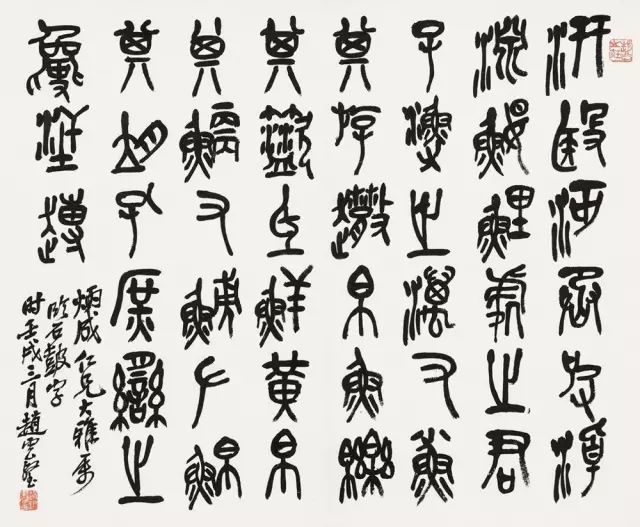 汧殹沔丞皮淖
淵鰋鯉處之君
子漁之澫又小魚
其斿帛魚皪
其氐鮮黃帛
其鯿又鮊
其孔庶臠之
煥成仁兄大雅屬
臨石鼓字
時壬戌三月趙雲壑